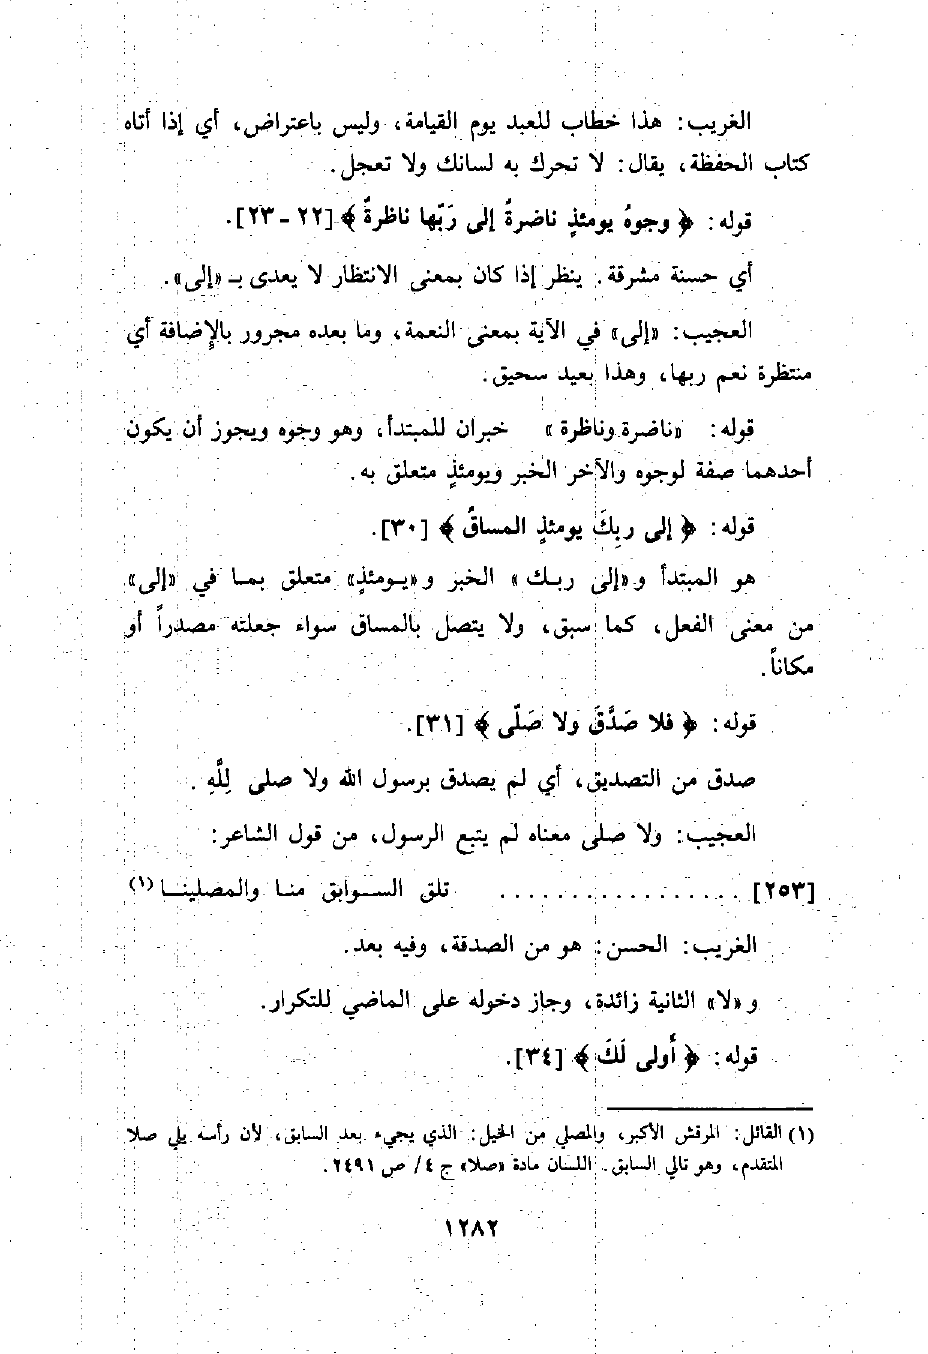 الغريب: هذا خطاب للعبد يوم القيامة، وليس باعتراض، أي إذا أتاه
كتاب الحفظة، يقال: لا تحرك به لسانك ولا تعجل.
قوله: ﴿ وجوهٌ يومئذٍ ناضرةٌ إلى رَبّها ناظرةٌ ﴾ [٢٢ - ٢٣].
أي حسنة مشرقة. ينظر إذا كان بمعنى الانتظار لا يعدى بـ «إلى».
العجيب: «إلى» في الآية بمعنى النعمة، وما بعده مجرور بالإضافة أي
منتظرة نعم ربها، وهذا بعيد سحيق.
قوله: «ناضرة وناظرة» خبران للمبتدأ، وهو وجوه ويجوز أن يكون
أحدهما صفة لوجوه والآخر الخبر ويومئذٍ متعلق به.
قوله: ﴿ إلى ربِكَ يومئذٍ المساقُ ﴾ [٣٠].
هو المبتدأ و«إلى ربـك» الخبر و«يـومئذٍ» متعلق بمـا في «إلى»
من معنى الفعل، كما سبق، ولا يتصل بالمساق سواء جعلته مصدراً أو
مكاناً.
قوله: ﴿ فلا صَدَّقَ ولا صَلّى ﴾ [٣١].
صدق من التصديق، أي لم يصدق برسول الله ولا صلى لِلَّهِ .
العجيب: ولا صلى معناه لم يتبع الرسول، من قول الشاعر:
[٢٥٣] . . . . . . . . . . . . . . . . . تلق الســوابق منـا والمصلينــا (١)
الغريب: الحسن: هو من الصدقة، وفيه بعد.
و «لا» الثانية زائدة، وجاز دخوله على الماضي للتكرار.
قوله: ﴿ أَولى لَكَ ﴾ [٣٤].
(١) القائل: المرقش الأكبر، والمصلي من الخيل: الذي يجيء بعد السابق، لأن رأسه يلي صلا
المتقدم، وهو تالي السابق. اللسان مادة «صلا» ج ٤/ ص ٢٤٩١.
١٢٨٢